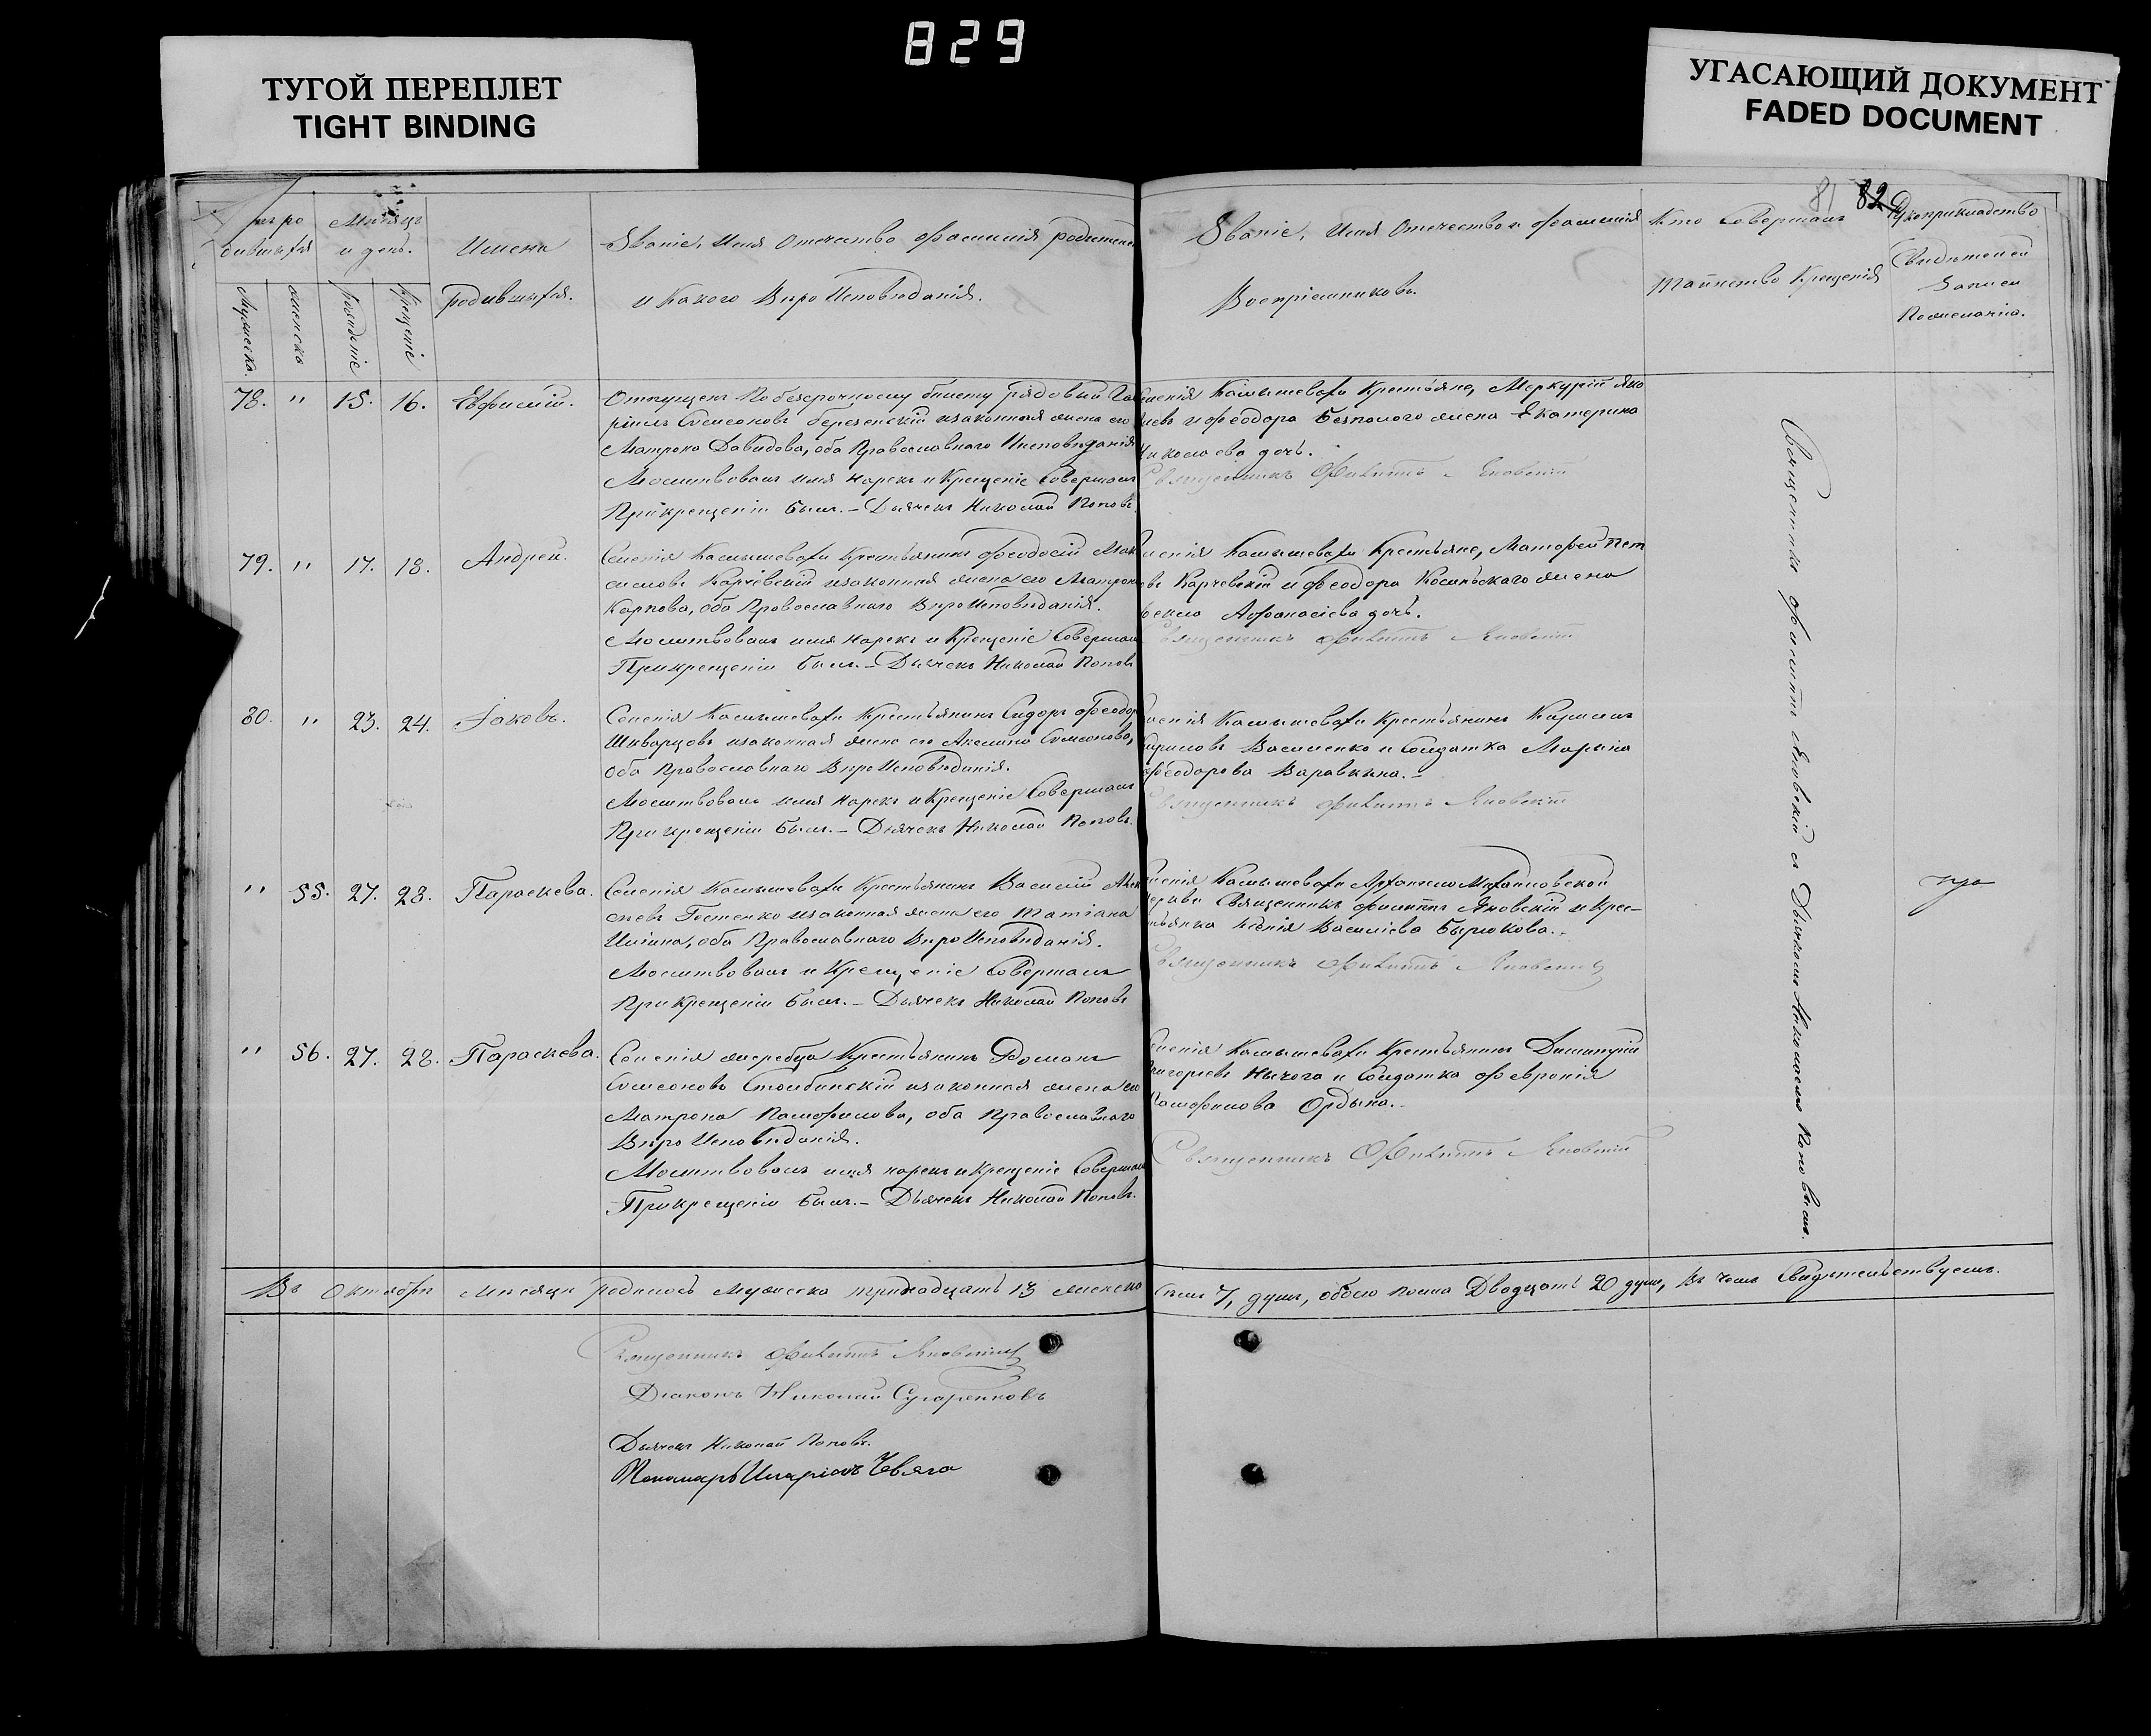 829
ТУГОЙ ПЕРЕПЛЕТ
TIGHT BINDING
УГАСАЮЩИЙ ДОКУМЕНТ
FADED DOCUMENT
81 82
Мѣсяцъ
и день.
Имена
родившихся.
Званіе, Имя Отечество Фамилія родителей
и Какого Вѣро Исповѣданія.
Званіе, Имя Отечество и Фамилія
Воспріемниковъ.
Кто Совершалъ
Таинство Крещенія
Рукоприкладство
Свидѣтелей
Записи
По желанію.
Мужеска.
женска
рожденіе
крещеніе
78. " 15. 16. Евфимій.
Отпущен. По безсрочному билету рядовый
Сѵмеоновъ Березенскій и законная жена его
Матрона Давидова, оба Православнаго Исповѣданія
Молитвовалъ имя нарекъ и Крещеніе Совершалъ
При крещеніи былъ. – Дьячекъ Николай Поповъ.
Камышевахи Крестьяне, Меркурій Яко
и Феодора Безпалого жена Екатерина
Николаева дочь.
Священникъ Филиппъ Яновскій
79. " 17. 18. Андрей.
Селенія Камышевахи Крестьянинъ Феодосій Мак
симовъ Карчевскій и законная жена его Матрона
Карпова, оба Православнаго Вѣро Исповѣданія.
Молитвовалъ имя нарекъ и Крещеніе Совершалъ
При крещеніи былъ. – Дьячекъ Николай Поповъ
Селенія Камышевахи Крестьяне, Матфей Пет
овъ Карчевскій и Феодора жена
Афанасіева дочь.
Священникъ Филиппъ Яновскій
80. " 23. 24. Іаковъ.
Селенія Камышевахи Крестьянинъ Сидоръ Феодор
Шкварцовъ и законная жена его Акилина Сѵмеонова,
оба Православнаго Вѣро Исповѣданія.
Молитвовалъ имя нарекъ и Крещеніе Совершалъ
При крещеніи былъ. – Дьячекъ Николай Поповъ.
Селенія Камышевахи Крестьянинъ Кирилъ
Кириловъ Василенко и Солдатка Марина
Феодорова Варавкина. –
Священникъ Филиппъ Яновскій
" 55. 27. 28. Параскева.
Селенія Камышевахи Крестьянинъ Василій Алек
и законная жена его Татіана
Иліина, оба Православнаго Вѣро Исповѣданія.
Молитвовалъ и Крещеніе Совершалъ
При Крещеніи былъ. – Дьячекъ Николай Поповъ
Селенія Камышевахи Архангело Михайловской
Церкви Священникъ Филиппъ Яновскій и Крес-
тьянка Ксенія Василіева Бырюкова.
Священникъ Филиппъ Яновскій
" 56. 27. 28. Параскева.
Селенія Жеребца Крестьянинъ Романъ
Сѵмеоновъ Столбинскій и законная жена его
Матрона Памфилова, оба Православнаго
Вѣро Исповѣданія.
Молитвовалъ имя нарекъ и Крещеніе Совершалъ
При крещеніи былъ. – Дьячекъ Николай Поповъ.
Селенія Камышевахи Крестьянинъ Димитрій
Григорьевъ и Солдатка Февронія
Памфилова Ордына.
Священникъ Филиппъ Яновскій
Священникъ Филиппъ Яновскій съ Дьячкомъ Николаемъ Поповымъ.
Въ Октябрѣ Мѣсяцѣ родилось Мужеска тринадцать 13 женска Семь 7, душъ, обоего пола Двадцать 20 душъ, въ чемъ Свидѣтельствуемъ.
Священникъ Филиппъ Яновскій
Діаконъ Николай
Дьячекъ Николай Поповъ.
Пономарь Иларіонъ